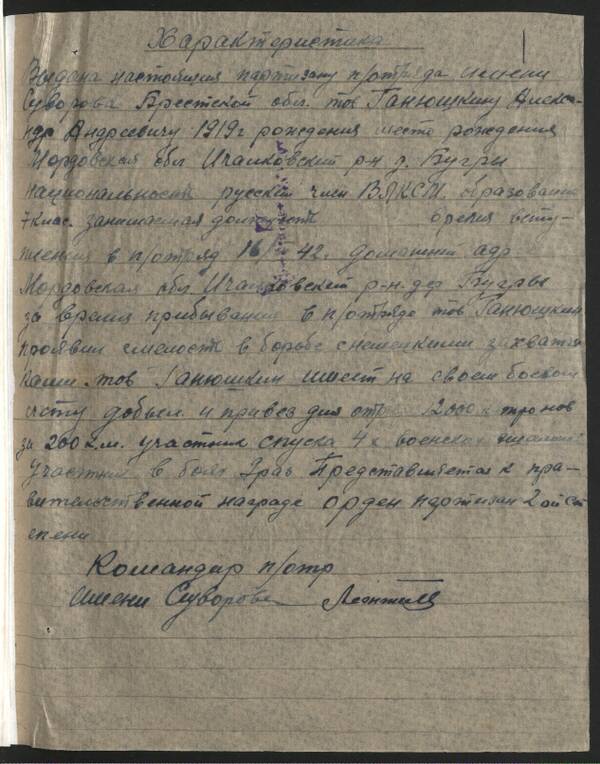 Характеристика
Выдана настоящия партизану п/отряда имени
Суворова Брестской обл. тов Ганюшкину Алекса-
ндр Андреевичу 1919г рождения место рождения
Мордовская обл Ичалковский р-н д. Бугры
национальность русский член ВЛКСМ образование
7 клас. занимаемая должность время всту-
пления в п/отряд 16 42. домашний адр
Мордовская обл Ичалковский р-н. дер Бугры
за время прибывания в п/отряде тов Ганюшкин
проявил смелость в борьбе с немецкими захватчи
ками. тов Ганюшкин имеет на своем боевом
счту добыл и привез для отряд 12000 патронов
за 200 к.м. участник спуска 4х военских эшалонов
Участник в боях 3 раз Представляется к пра-
вительственной награде орден партизан 2ой ст
епени
Командир п/отр
имени Суворова